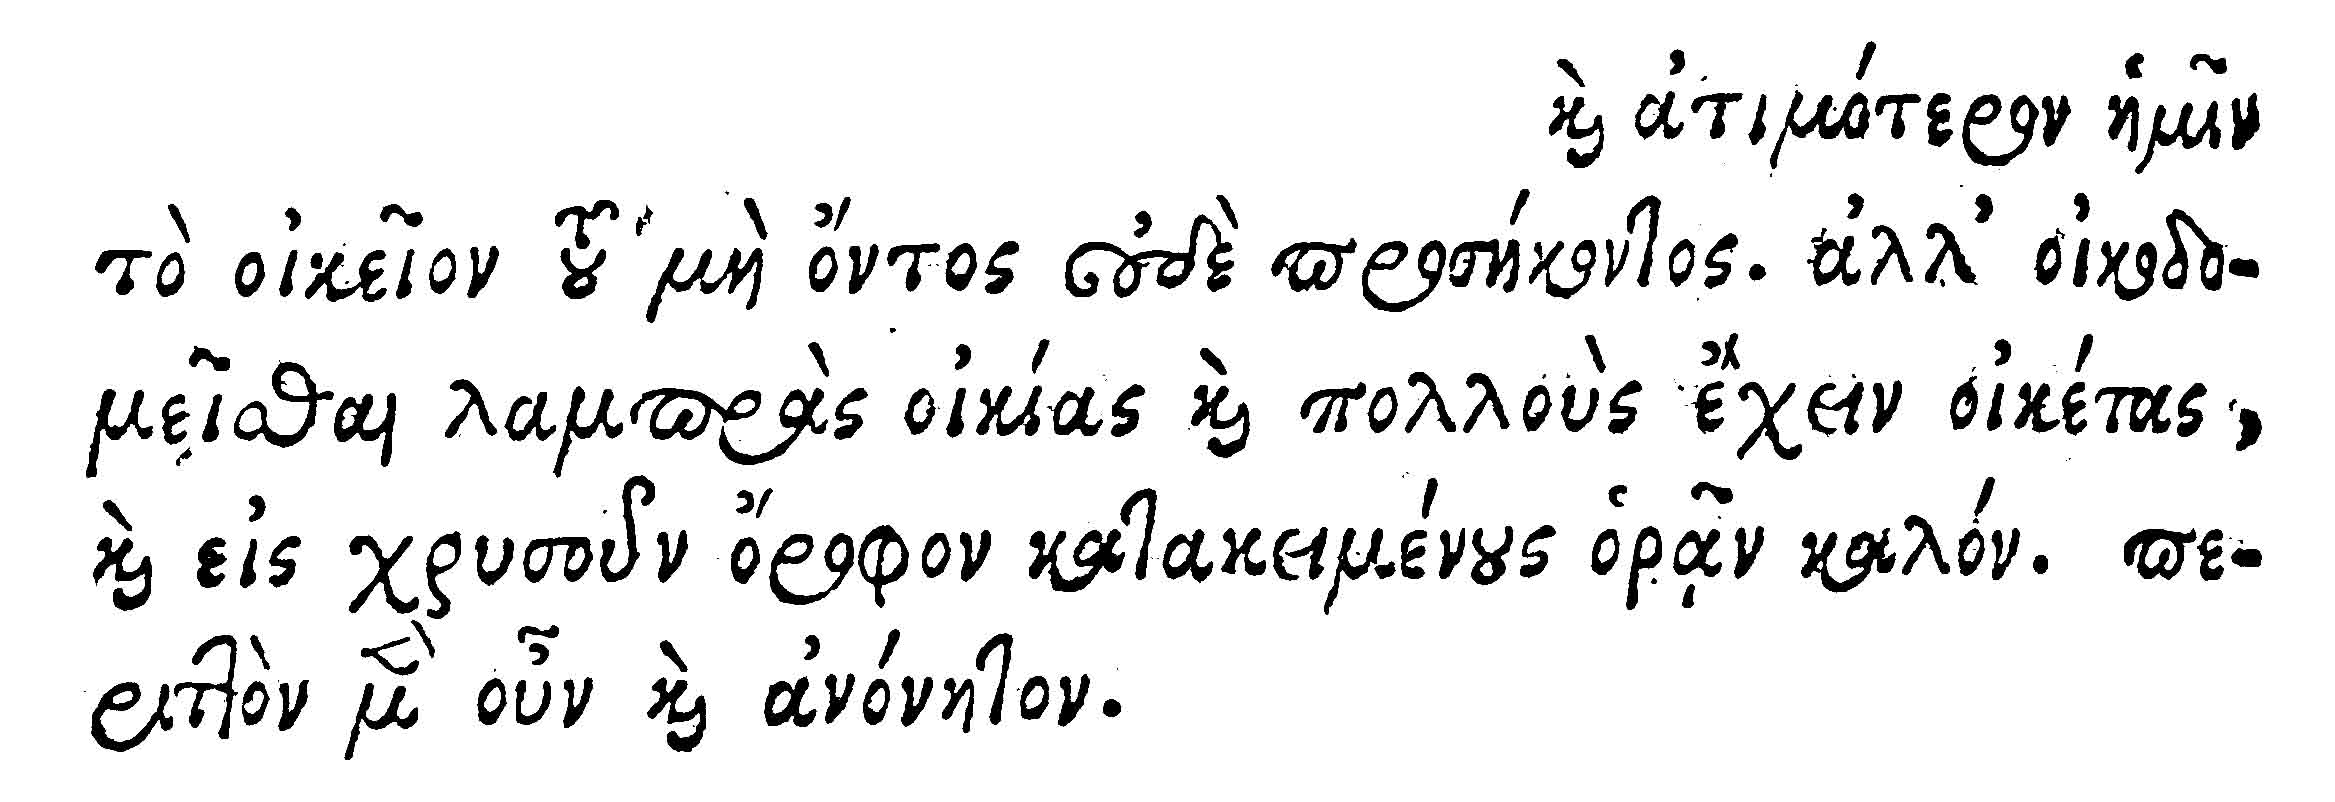 καὶ ἀτιμότερον ἡμῖν
τὸ οἰκεῖον τοῦ μὴ ὄντος οὐδὲ προσήκοντος. ἀλλ’ οἰκοδο-
μεῖσθαι λαμπρὰς οἰκίας καὶ πολλοὺς ἔχειν οἰκέτας,
καὶ εἰς χρυσοῦν ὄροφον κατακειμένους ὁρᾷν καλόν. πε-
ριττὸν μὲν οὖν καὶ ἀνόνητον.